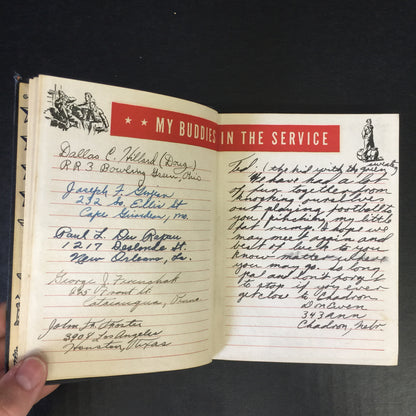 ★ ★ MY BUDDIES IN THE SERVICE
Dallas C. Hillard (Doug)
R R 3 Bowling Green, Ohio
Joseph F.
232 So. Ellis St
Cape Girardeau, Mo.
Paul L. Du Repau
1217 Deslonde St.
New Orleans, La.
George J.
Front St
Catasauqua, Penna
John H.
3908 Los Angeles
Houston, Texas
Ted, (the kid with the
We have had a lot
of fun together from
knocking ourselves
out playing football to
you pinching my little
fat rump. I hope we
may meet again and
best of luck to you
no matter
you may go. So long
pal and don't forget
to stop if you ever
get close to Chadron
Don Owen
343 Ann
Chadron, Nebr